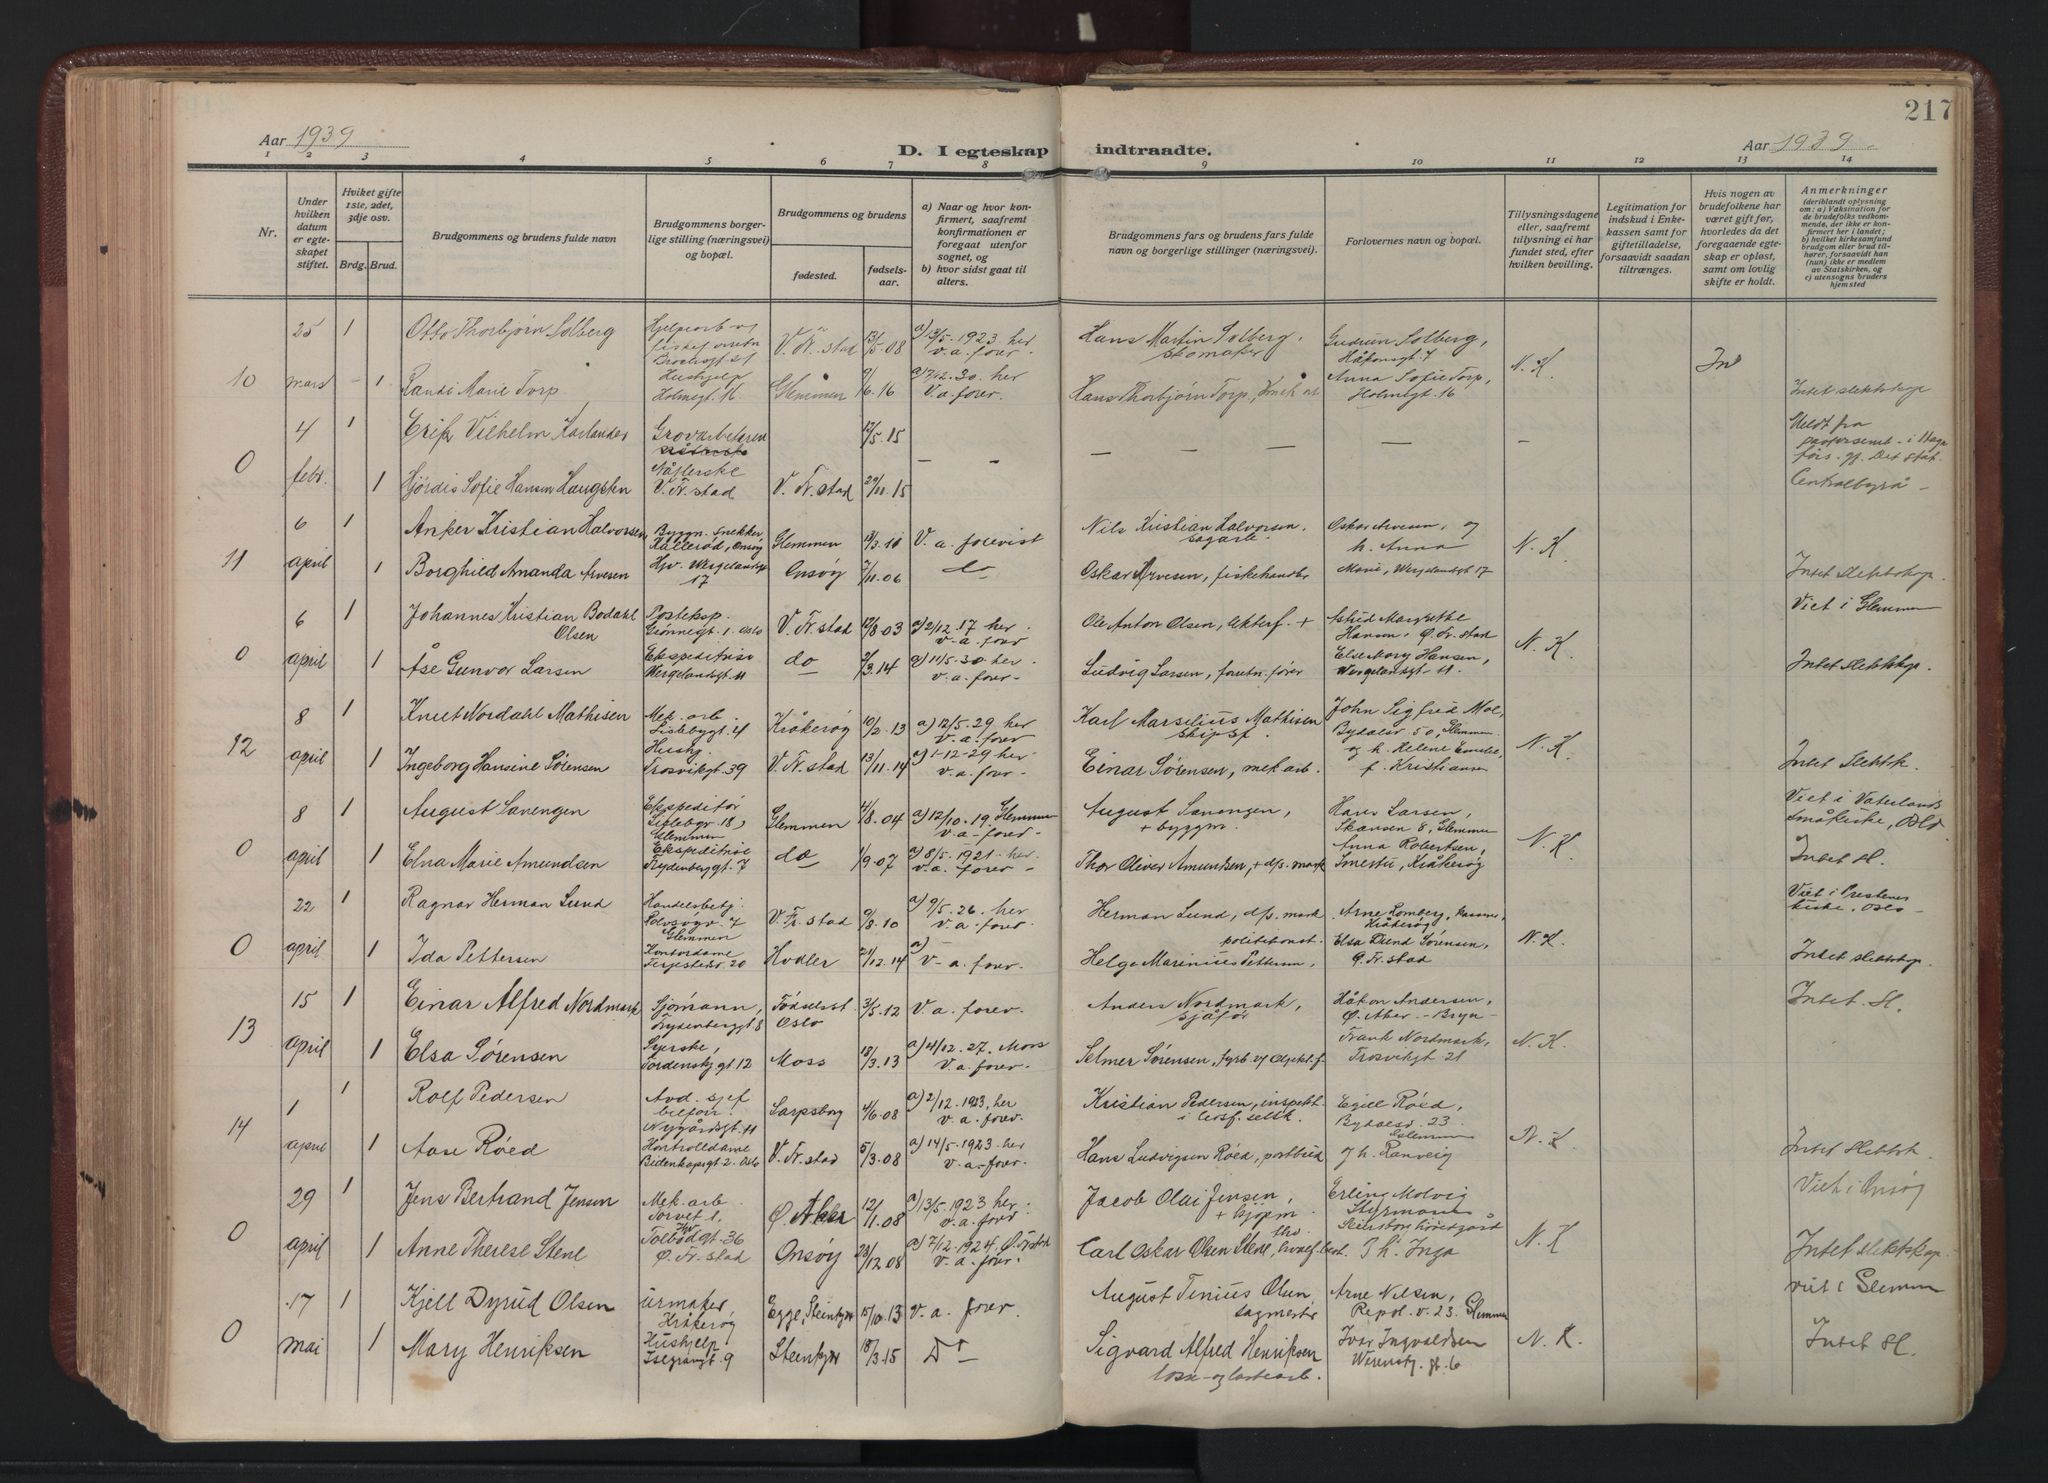 217
Aar 1939
D. I egteskap indtraadte.
Aar 1939
1 2 3 4 5 6 7 8 9 10 11 12 13 14
Nr.
Under hvilken datum er egteskapet stiftet.
Hviket gifte 1ste, 2det, 3dje osv.
Brdg. Brud.
Brudgommens og brudens fulde navn
Brudgommens borgerlige stilling (næringsvei) og bopæl.
Brudgommens og brudens
fødested.
fødselsaar.
a) Naar og hvor konfirmert, saafremt konfirmationen er foregaat utenfor sognet, og
b) hvor sidst gaat til alters.
Brudgommens fars og brudens fars fulde navn og borgerlige stillinger (næringsvei).
Forlovernes navn og bopæl.
Tillysningsdagene eller, saafremt tillysning ei har fundet sted, efter hvilken bevilling.
Legitimation for indskud i Enkekassen samt for giftetilladelse, forsaavidt saadan tiltrænges.
Hvis nogen av brudefolkene har været gift før, hvorledes da det foregaaende egteskap er opløst, samt om lovlig skifte er holdt.
Anmerkninger
(deriblandt oplysning om: a) Vaksination for de brudefolks vedkommende, der ikke er konfirmert her i landet; b) hvilket kirkesamfund brudgom eller brud tilhører, forsaavidt han (hun) ikke er medlem av Statskirken, og c) utensogns bruders hjemsted
25 1 Otto Thorbjørn Solberg V. Fr. stad 13/5 08 a) 13/5. 1923 her v. a. forev. Hans Martin Solberg, skomaker Gudrun Solberg, Håkonsgt. 7
10 mars 1 Randi Marie Torp Hushjelp Holmegt. 16 Glemmen 6.16 a) 17/12. 30. her V. a. forev. Hans Thorbjørn Torp, Anna Sofie Torp, Holmegt. 16 N. K. Intet slektskap
4 1 Erik Vilhelm Karlander Grovarbetaren 12/5. 15 Meldt fra
0 febr. 1 Hjørdis Sofie Hansen Haugsten V. Fr. stad V. Fr. stad 29/11. 15 Centralbyrå
6 1 Anker Kristian Halvorsen Byggn. snekker, Kållerød, Onsøy Glemmen 13/3. 10 V. a. forevist Nils Kristian Halvorsen, sagarb. Oskar Arvesen, og h. Anna
11 april 1 Borghild Amanda Arvesen Hjv. Wergelandsgt 17 Onsøy 7/11. 06 do Oskar Arvesen, fiskehandler Marie, Wergelandsgt 17 N. K. Intet slektskap.
6 1 Johannes Kristian Bodahl Olsen Posteksp. Grønnegt. 1. Oslo V. Fr. stad 12/8 03 a) 2/12. 17 her. v. a. forev Ole Anton Olsen, + Astrid Margrethe Hansen, Ø. Fr. stad Viet i Glemmen
0 april 1 Åse Gunvor Larsen Ekspeditrise Wergelandsgt. 11 do 3. 14 a) 11/5. 30. her. v. a. forev. Ludvig Larsen, forretn. fører Else Mary Hansen, Wergelandsgt. 11. N. K. Intet slektskap.
8 1 Knut Nordahl Mathisen Mek. arb. Lislebygt. 4 Kråkerøy 10/2. 13 a) 12/5. 29 her v. a. forev Karl Marselius Mathisen skipsf. John Sigfred Mol, Bydalsv 50, Glemmen
12 april 1 Ingeborg Hansine Sørensen Hushj. Trosvikgt. 39 V. Fr. stad 13/11. 14 a) 1-12-29 her v. a. forev. Einar Sørensen, mek arb. og h. Helene Emelie, f. Kristiansen N. K. Intet slektsk.
8 1 August Savengen Ekspeditør Lislebyv. 18, Glemmen Glemmen 4/8. 04 a) 12/10. 19. Glemmen v. a. forev. August Savengen, + byggm. Hans Larsen, Skansen 8, Glemmen Viet i Vaterlands Småkirke, Oslo
0 april 1 Elna Marie Amundsen Ekspeditrise Frydenberggt. 7 do 1/9. 07 a) 8/5. 1921. her. v. a. forev Thor Oliver Amundsen, + d/s. mask Anna Robertsen, Smestu, Kråkerøy N. K. Intet sl.
22 1 Ragnar Herman Lund Handelsbetj. Glemmen V. Fr. stad 9/8. 10 a) 9/5. 26. her v. a. forev. Herman Lund, d/s. mask Arne Romberg, Kråkerøy Viet i Prestenes kirke, Oslo
0 april 1 Ida Pettersen Kontordame Ferjestedsv. 20 Hvaler 21/12. 14 a) V. a. forev. Helge Marinius Pettersen, politikonst. Elsa Lund Sørensen, Ø. Fr. stad N. K. Intet slektskap.
15 1 Einar Alfred Nordmark Sjømann, Frydenberggt 8 Fødselsst Oslo 3/5. 12 V. a. forev. Anders Nordmark, sjåfør Håkon Andersen, Ø. Aker - Bryn Intet. Sl.
13 april 1 Elsa Sørensen Syerske, Tordenskj gt 12 Moss 18/3. 13 a) 4/12. 27. Moss V. a. forev. Selmer Sørensen, Frank Nordmark, Trosvikgt 21 N. K.
1 1 Rolf Pedersen Avd. sjef Nygårdsgt. 11 Sarpsborg 4/6. 08 a) 2/12. 1923, her v. a. forev. Kristian Pedersen, inspekt. Egill Røed, Bydalsv. 23. Glemmen
14 april 1 Aase Røed Kontrolldame Bidenkapsgt 2. Oslo V. Fr. stad 5/3. 08 a) 14/5. 1923. her v. a. forev. Hans Ludvigsen Røed, postbud og h. Ranveig N. K. Intet slektsk.
29 1 Jens Bertrand Jensen Mek. arb. Torvet 1, Ø. Aker 12/11. 08 a) 13/5. 1923 her v. a. forev Jacob Olai Jensen, + kjøpm Erling Molvig Styrmann Viet i Onsøy
0 april 1 Anne Therese Stene Tolbodgt. 36 Ø. Fr. stad Onsøy 23/12. 08 a) 7/12. 1924, Ø. Fr. stad v. a. forev. Carl Oskar Olsen Stene, og h. Inga N. K Intet slektskap.
17 1 Kjell Dyrud Olsen urmaker, Kråkerøy Egge, Steinkjer 15/10. 13 v. a. forev. August Tinius Olsen, sagmester Arne Nilsen, Repsl. v. 23. Glemmen viet i Glemm
0 mai 1 Mary Henriksen Hushjelp Isegrangt 9 Steinkjer 18/3. 15 Do Sigvard Alfred Henriksen losse- og lastearb. Ivar Ingvaldsen Werenskj. gt. 6 N. K. Intet Sl.